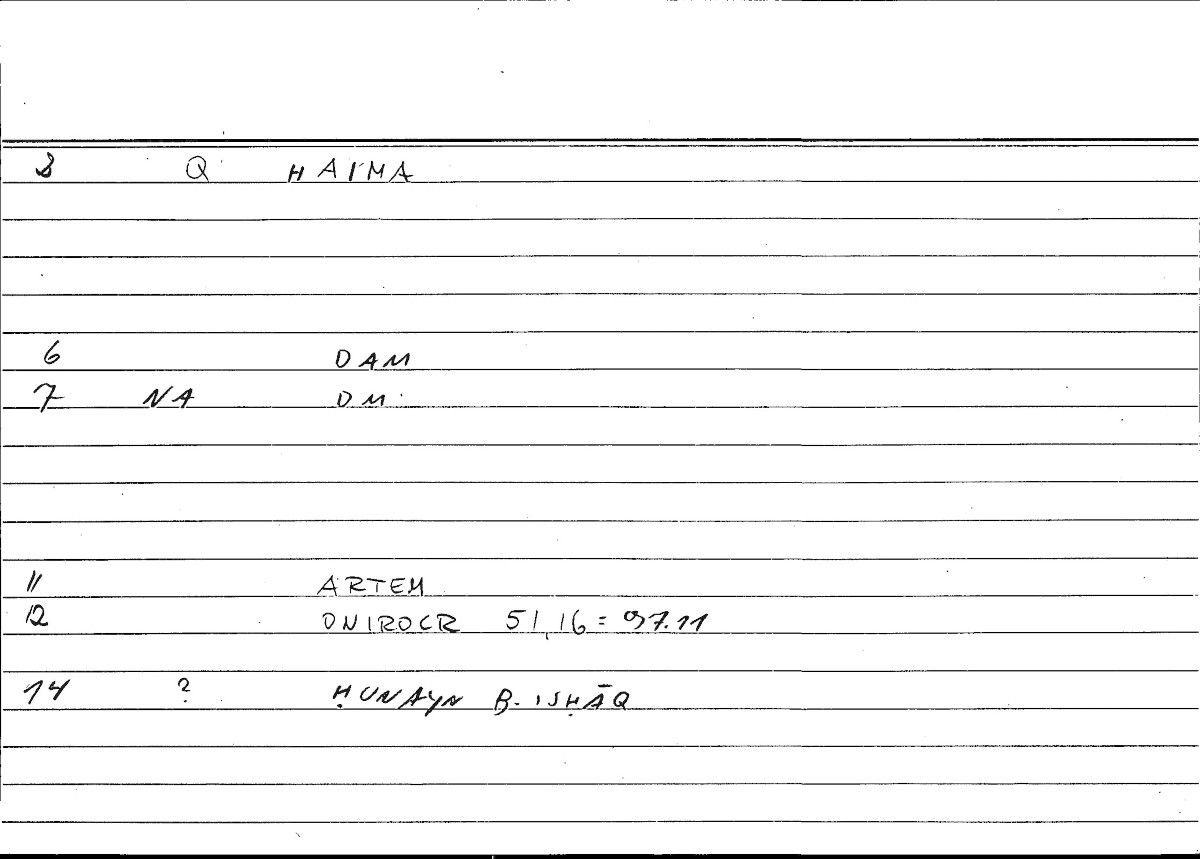 8 Q HAIMA
6 DAM
7 NA DM
11 ARTEM
12 ONIROCR 51,16 = 97.11
14 ? ḤUNAYN B. ISḤĀQ